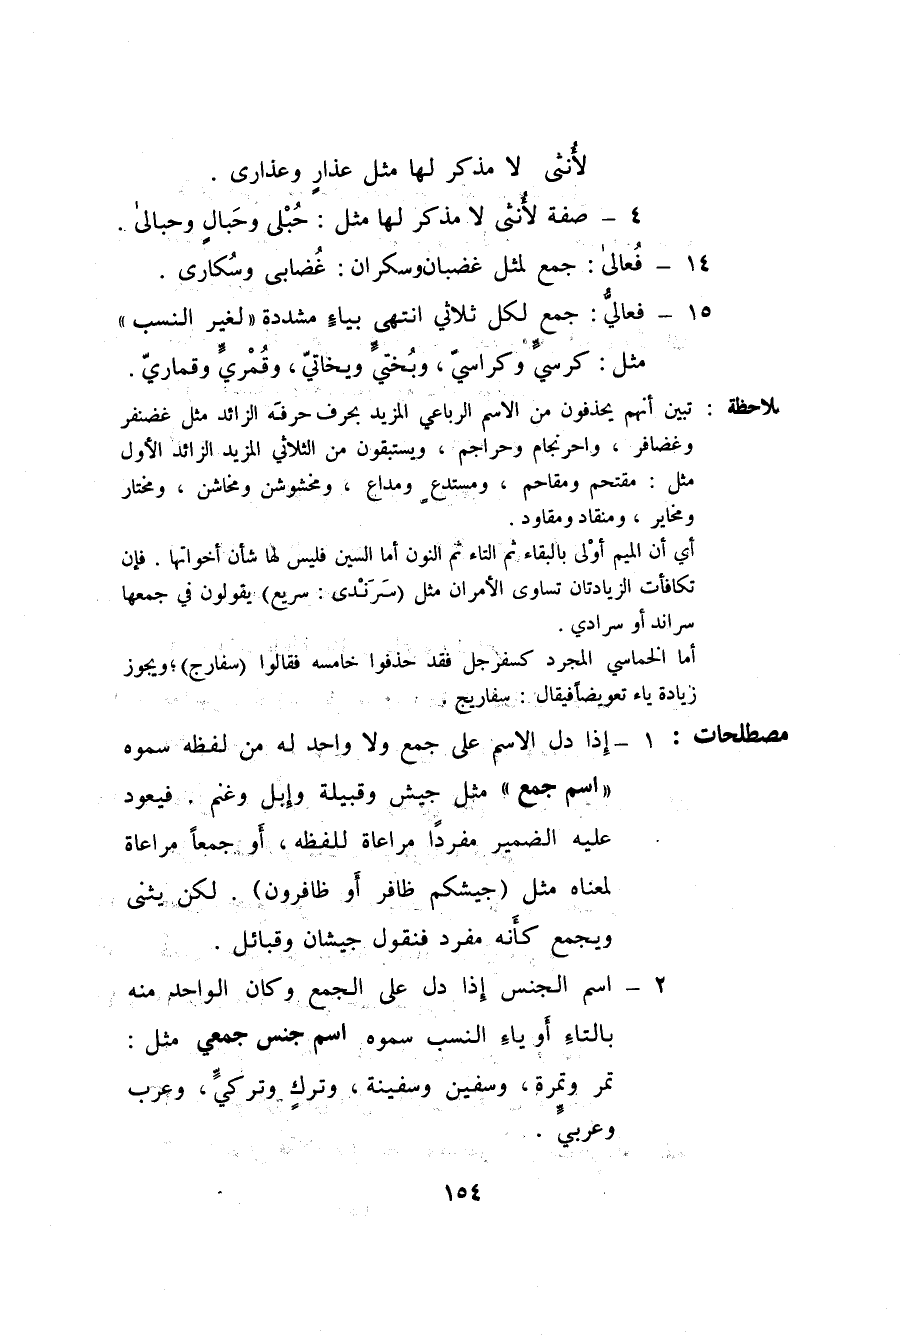 لأُنثى لا مذكر لها مثل عذارٍ وعذارى .
٤ – صفة لأُنثى لا مذكر لها مثل : حُبْلى وحَبالٍ وحبالىٰ .
١٤ – فُعالىٰ : جمع لمثل غضبان وسكران : غُضابى وسُكارى .
١٥ – فعاليُّ : جمع لكل ثلاثي انتهى بياءٍ مشددة « لغير النسب »
مثل : كرسيٍّ وكراسيّ ، وبُختيٍّ وبخاتيّ ، وقُمْريٍّ وقماريّ .
ملاحظة : تبين أنهم يحذفون من الاسم الرباعي المزيد بحرف حرفَه الزائد مثل غضنفر
وغضافر ، واحرنجام وحراجم ، ويستبقون من الثلاثي المزيد الزائد الأول
مثل : مقتحم ومقاحم ، ومستدعٍ ومداع ، ومخشوشن ومخاشن ، ومختار
ومخاير ، ومنقاد ومقاود .
أي أن الميم أوْلى بالبقاء ثم التاء ثم النون أما السين فليس لها شأن أخواتها . فإن
تكافأت الزيادتان تساوى الأمران مثل (سَرَنْدى : سريع) يقولون في جمعها
سراند أو سرادي .
أما الخماسي المجرد كسفرجل فقد حذفوا خامسه فقالوا (سفارج)؛ ويجوز
زيادة ياء تعويضاً فيقال : سفاريج .
مصطلحات : ١ – إذا دل الاسم على جمع ولا واحد له من لفظه سموه
« اسم جمع » مثل جيش وقبيلة وإبل وغنم . فيعود
عليه الضمير مفردًا مراعاة للفظه ، أو جمعاً مراعاة
لمعناه مثل (جيشكم ظافر أو ظافرون) . لكن يثنى
ويجمع كأَنه مفرد فنقول جيشان وقبائل .
٢ – اسم الجنس إذا دل على الجمع وكان الواحد منه
بالتاءِ أو ياءِ النسب سموه اسم جنس جمعي مثل :
تمر وتمرة ، وسفين وسفينة ، وتركٍ وتركيٍّ ، وعرب
وعربيٍّ .
١٥٤